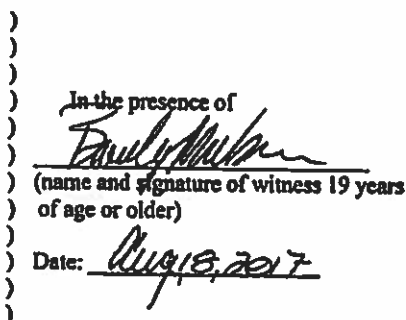 )
)
)
)
) In the presence of
)
)
)
) (name and signature of witness 19 years
) of age or older)
)
) Date: Aug 18, 2017
)
)